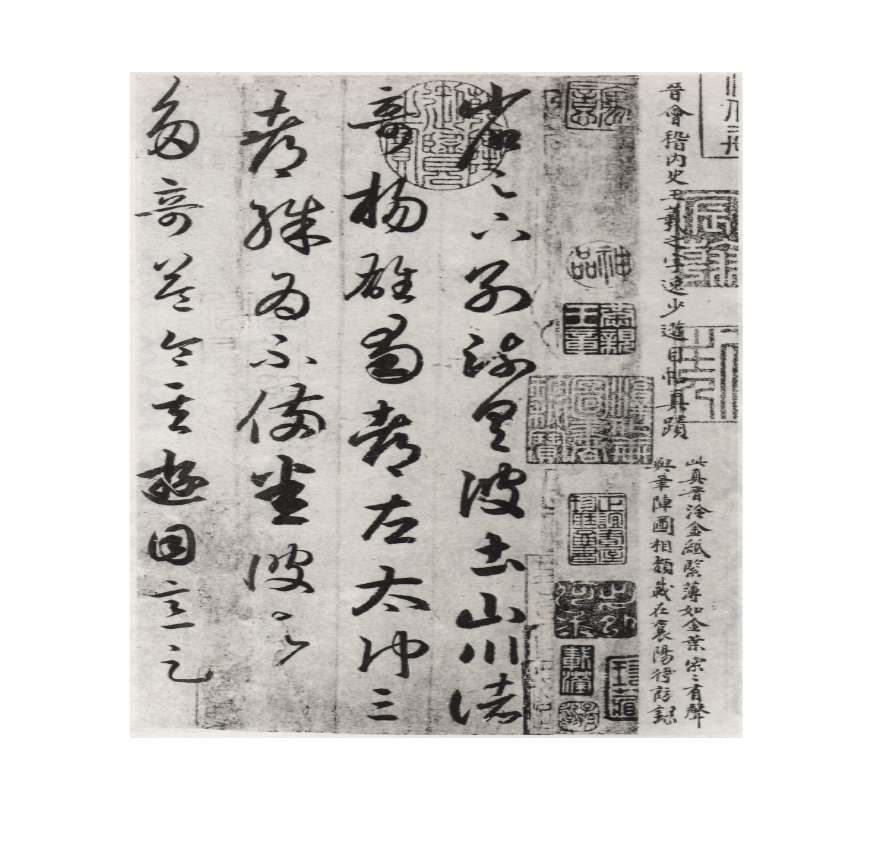 晉會稽內史王羲之字逸少遊目帖真蹟
此真晉冷金紙緊薄如金葉索〻有聲
與筆陣圖相類藏在襄陽待訪錄
神品
省足下別疏具彼土山川諸
奇楊雄蜀都左太沖三
都殊為不備悉彼故
多奇益令其遊目意足